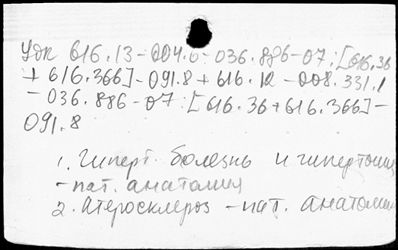 УДК 616.13-004.6-036.886-07:[616.36
+616.366]-091.8+616.12-008.331.1
-036.886-07:[616.36+616.366]-
091.8
1. Гиперт. болезнь и гипертония
-пат. анатомия
2. Атеросклероз -пат. анатомия